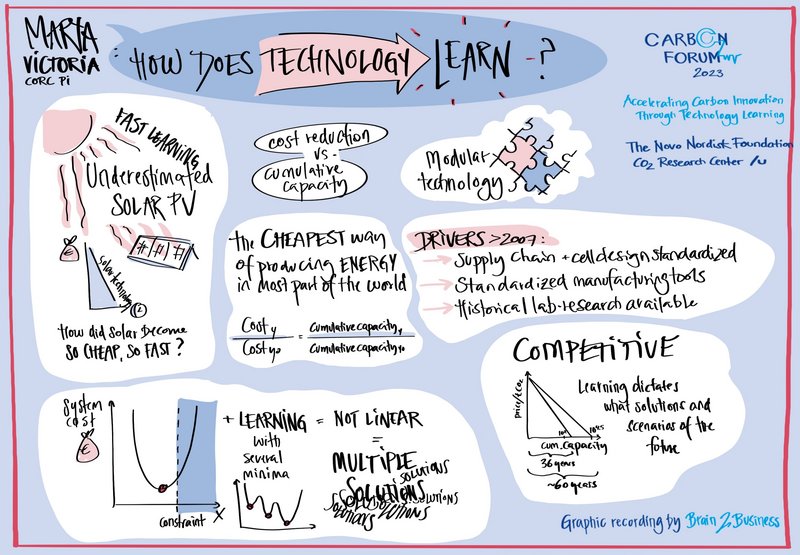 MARTA
VICTORIA
CORC PI
HOW DOES TECHNOLOGY LEARN ?
CARBON
FORUM
2023
Accelerating Carbon Innovation
Through Technology Learning
The Novo Nordisk Foundation
CO2 Research Center
FAST LEARNING
Underestimated
SOLAR PV
€
solar technology
How did solar become
SO CHEAP, SO FAST?
cost reduction
vs
cumulative
capacity
Modular
technology
the CHEAPEST way
of producing ENERGY
in most part of the world
Cost y
Cost y0
cumulative capacity y
cumulative capacity y0
DRIVERS > 2007:
→ Supply Chain + cell design standardized
→ Standardized manufacturing tools
→ Historical lab-research available
COMPETITIVE
price/€CO2
cum. capacity
36 years
~60 years
Learning dictates
what solutions and
scenarios of the
future
System
cost
€
constraint
X
+ LEARNING = NOT LINEAR
with
several
minima
=
MULTIPLE
SOLUTIONS
SOLUTIONS
SOLUTIONS
SOLUTIONS
SOLUTIONS
Graphic recording by Brain2Business